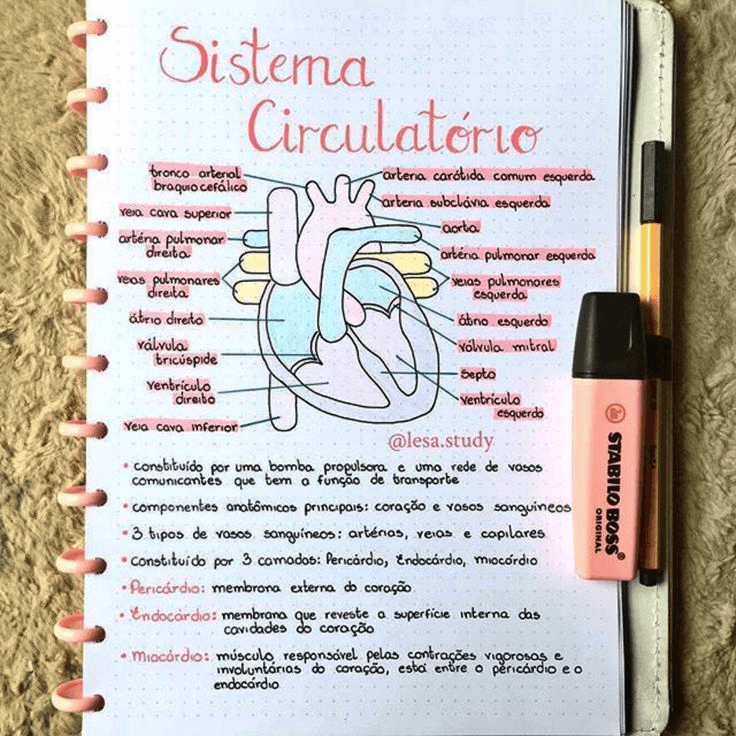 Sistema
Circulatório
tronco arterial
braquiocefálico
veia cava superior
artéria pulmonar
direita
veias pulmonares
direita
átrio direito
válvula
tricúspide
ventrículo
direito
veia cava inferior
arteria carótida comum esquerda
arteria subclávia esquerda
aorta
artéria pulmonar esquerda
veias pulmonares
esquerda
átrio esquerdo
válvula mitral
septo
ventrículo
esquerdo
@lesa.study
• constituído por uma bomba propulsora e uma rede de vasos
comunicantes que tem a função de transporte
• componentes anatômicos principais: coração e vasos sanguíneos
• 3 tipos de vasos sanguíneos: artérias, veias e capilares
• constituído por 3 camadas: Pericárdio, Endocárdio, miocárdio
• Pericárdio: membrana externa do coração
• Endocárdio: membrana que reveste a superfície interna das
cavidades do coração
• Miocárdio: músculo responsável pelas contrações vigorosas e
involuntárias do coração, está entre o pericárdio e o
endocárdio
STABILO BOSS
ORIGINAL